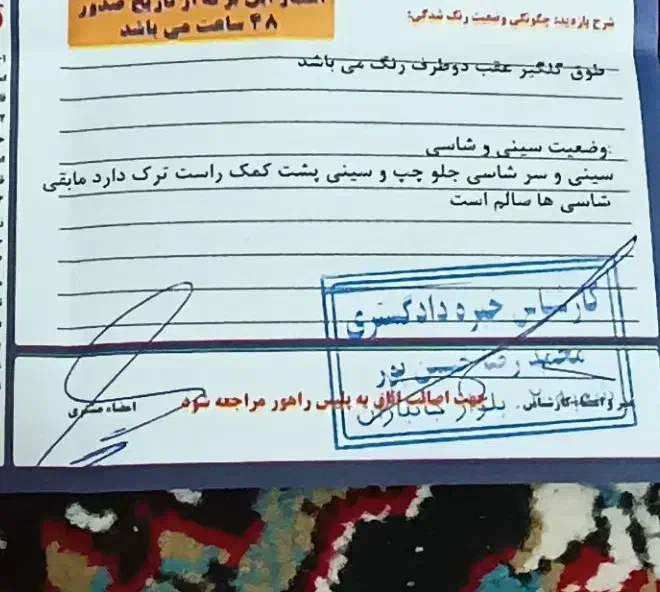 اعتبار این برگه از تاریخ صدور
۴۸ ساعت می باشد
شرح بازدید: چگونگی وضعیت رنگ شدگی:
طوق گلگیر عقب دوطرف رنگ می باشد
وضعیت سینی و شاسی:
سینی و سر شاسی جلو چپ و سینی پشت کمک راست ترک دارد مابقی
شاسی ها سالم است
کارشناس خبره دادگستری
محمد رضا حسن پور
بلوار جانبازان
مهر و امضاء کارشناس
جهت اصالت اتاق به پلیس راهور مراجعه شود
امضاء مشتری